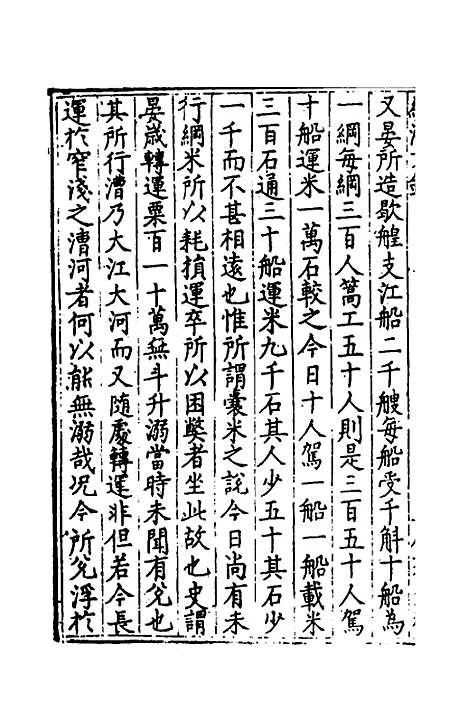 又晏所造歇艎支江船二千艘每船受千斛十船為
一綱每綱三百人篙工五十人則是三百五十人駕
十船運米一萬石較之今日十人駕一船一船載米
三百石通三十船運米九千石其人少五十其石少
一千而不甚相遠也惟所謂囊米之說今日尚有未
行綱米所以耗損運卒所以困獘者坐此故也史謂
晏歲轉運粟百一十萬無斗升溺當時未聞有兌也
其所行漕乃大江大河而又隨處轉運非但若今長
運於窄淺之漕河者何以能無溺哉况今所兌浮於